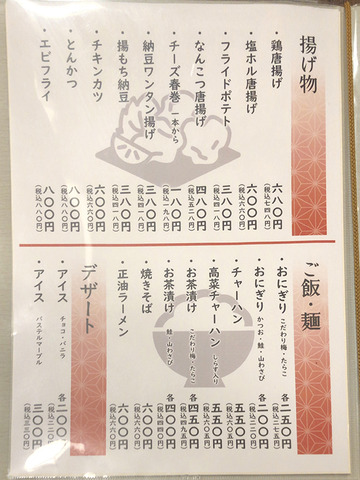 揚げ物
・鶏唐揚げ 六八〇円 (税込七四八円)
・塩ホル唐揚げ 六〇〇円 (税込六六〇円)
・フライドポテト 三八〇円 (税込四一八円)
・なんこつ唐揚げ 四八〇円 (税込五二八円)
・チーズ春巻 一本から 一八〇円 (税込一九八円)
・納豆ワンタン揚げ 三八〇円 (税込四一八円)
・揚もち納豆 三八〇円 (税込四一八円)
・チキンカツ 六〇〇円 (税込六六〇円)
・とんかつ 八〇〇円 (税込八八〇円)
・エビフライ 八〇〇円 (税込八八〇円)
ご飯・麺
・おにぎり こだわり梅・たらこ 各二五〇円 (税込二七五円)
・おにぎり かつお・鮭・山わさび 各二〇〇円 (税込二二〇円)
・チャーハン 五五〇円 (税込六〇五円)
・高菜チャーハン しらす入り 五五〇円 (税込六〇五円)
・お茶漬け こだわり梅・たらこ 各四五〇円 (税込四九五円)
・お茶漬け 鮭・山わさび 各四〇〇円 (税込四四〇円)
・焼きそば 六〇〇円 (税込六六〇円)
・正油ラーメン 六〇〇円 (税込六六〇円)
デザート
・アイス チョコ・バニラ 各二〇〇円 (税込二二〇円)
・アイス パステルマーブル 各三〇〇円 (税込三三〇円)